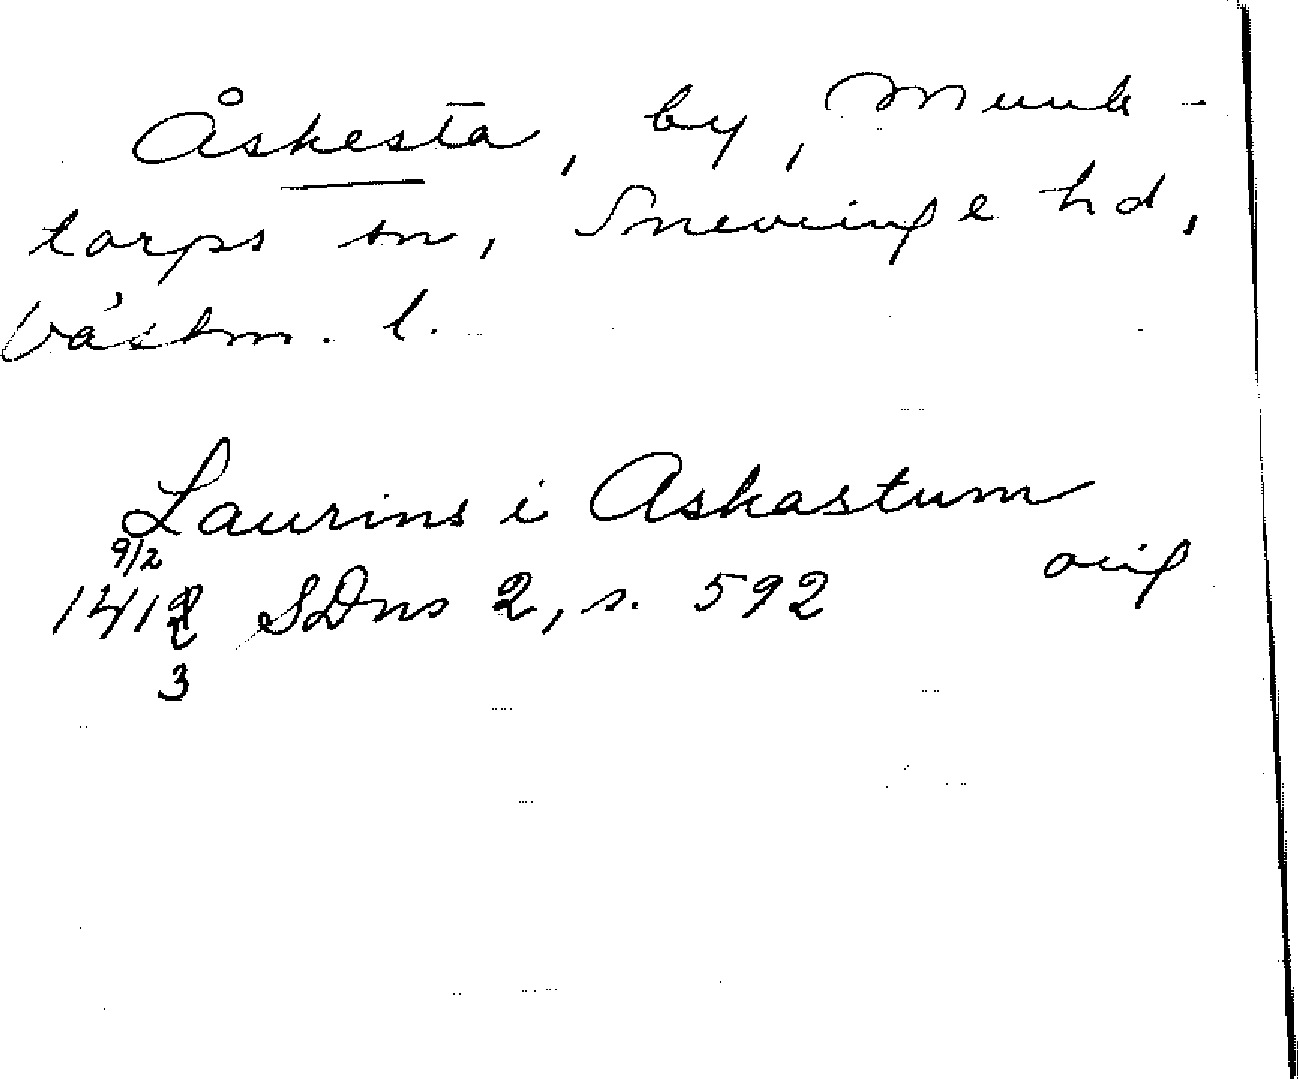 Åskesta, by, Munk-
torps sn, Snevinge hd,
Västm. l.
Laurins i Askastum
9/2 orig
141 SDns 2, s. 592
3